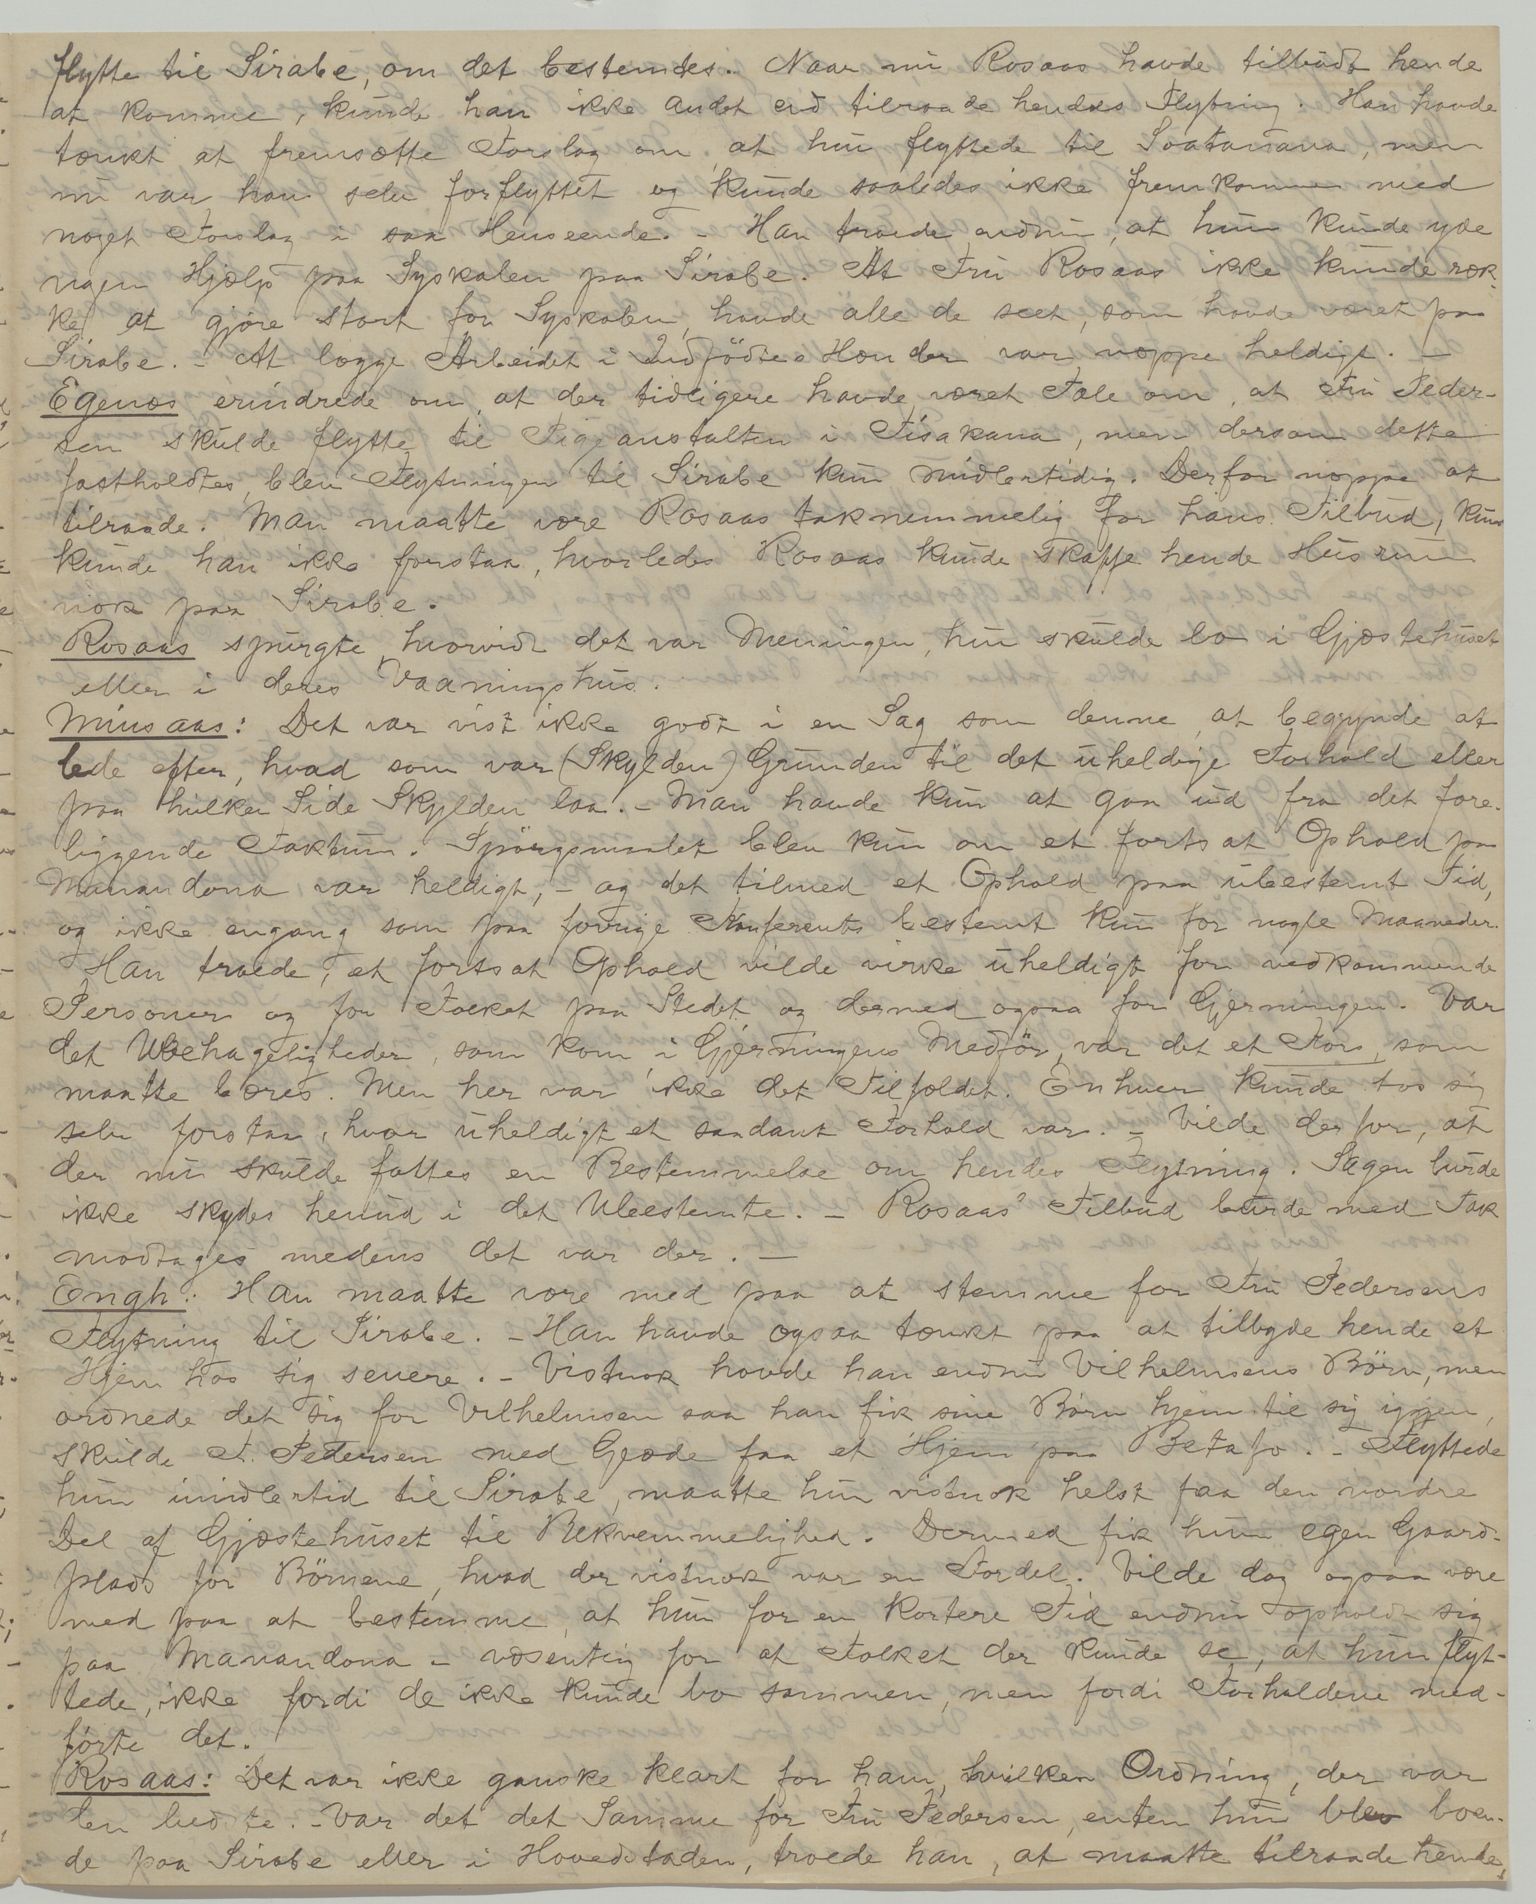 flytte til Sirabe, om det bestemdes. Naar nu Rosaas havde tilbudt hende
at komme, kunde han ikke andet end tilraade hendes Flytning. Han havde
tænkt at fremsætte Forslag om, at hun flyttede til Soatanana, men
nu var han selv forflyttet og kunde saaledes ikke fremkomme med
noget Forslag i saa Henseende. - Han troede endnu, at hun kunde yde
nogen Hjælp paa Syskolen paa Sirabe. At Fru Rosaas ikke kunde ræk-
ke at gjøre stort for Syskolen, havde alle de seet, som havde været paa
Sirabe. - At lægge Arbeidet i Indfödtes Hænder var næppe heldigt. -
Egenæs erindrede om, at der tidligere havde været Tale om, at Fru Peder-
sen skulde flytte til Pigeanstalten i Fisakana, men dersom dette
fastholdtes, blev Flytningen til Sirabe kun midlertidig. Derfor næppe at
tilraade. Man maatte være Rosaas taknemmelig for hans Tilbud, kun
kunde han ikke forstaa, hvorledes Rosaas kunde skaffe hende Husrum
nok paa Sirabe.
Rosaas spurgte, hvorvidt det var Meningen, hun skulde bo i Gjæstehuset
eller i deres Vaaningshus.
Minsaas: Det var vist ikke godt i en Sag som denne, at begynde at
lede efter, hvad som var (Skylden) Grunden til det uheldige Forhold eller
paa hvilken Side Skylden laa. - Man havde kun at gaa ud fra det fore-
liggende Faktum. Spørgsmaalet blev kun om et fortsat Ophold paa
Manandona var heldigt, - og det tilmed et Ophold paa ubestemt Tid,
og ikke engang som paa forrige Konferents bestemt kun for nogle Maaneder.
Han troede, et fortsat Ophold vilde virke uheldigt for vedkommende
Personer og for Folket paa Stedet og dermed ogsaa for Gjerningen. Var
det Ubehageligheder, som kom i Gjerningens Medför, var det et Kors, som
maatte bæres. Men her var ikke det Tilfældet. Enhver kunde hos sig
selv forstaa, hvor uheldigt et saadant Forhold var. - Vilde derfor, at
der nu skulde fattes en Bestemmelse om hendes Flytning. Sagen burde
ikke skydes henud i det Ubestemte. - Rosaas' Tilbud burde med Tak
modtages medens det var der. -
Engh: Han maatte være med paa at stemme for Fru Pedersens
Flytning til Sirabe. - Han havde ogsaa tænkt paa at tilbyde hende et
Hjem hos sig senere. - Vistnok havde han endnu Vilhelmsens Börn, men
ordnede det sig for Vilhelmsen saa han fik sine Börn hjem til sig igjen,
skulde F. Pedersen med Glæde faa et Hjem paa Betafo. - Flyttede
hun imidlertid til Sirabe, maatte hun vistnok helst faa den nordre
Del af Gjæstehuset til Bekvemmelighed. Dermed fik hun egen Gaards-
plads for Börnene, hvad der vistnok var en Fordel. Vilde dog ogsaa være
med paa at bestemme, at hun for en kortere Tid endnu opholdt sig
paa Manandona - væsentlig for at Folket der kunde se, at hun flyt-
tede, ikke fordi de ikke kunde bo sammen, men fordi Forholdene med-
förte det.
Rosaas: Det var ikke ganske klart for ham, hvilken Ordning, der var
den bedste. - Var det det Samme for Fru Pedersen, enten hun blev boen-
de paa Sirabe eller i Hovedstaden, troede han, at maatte tilraade hende,